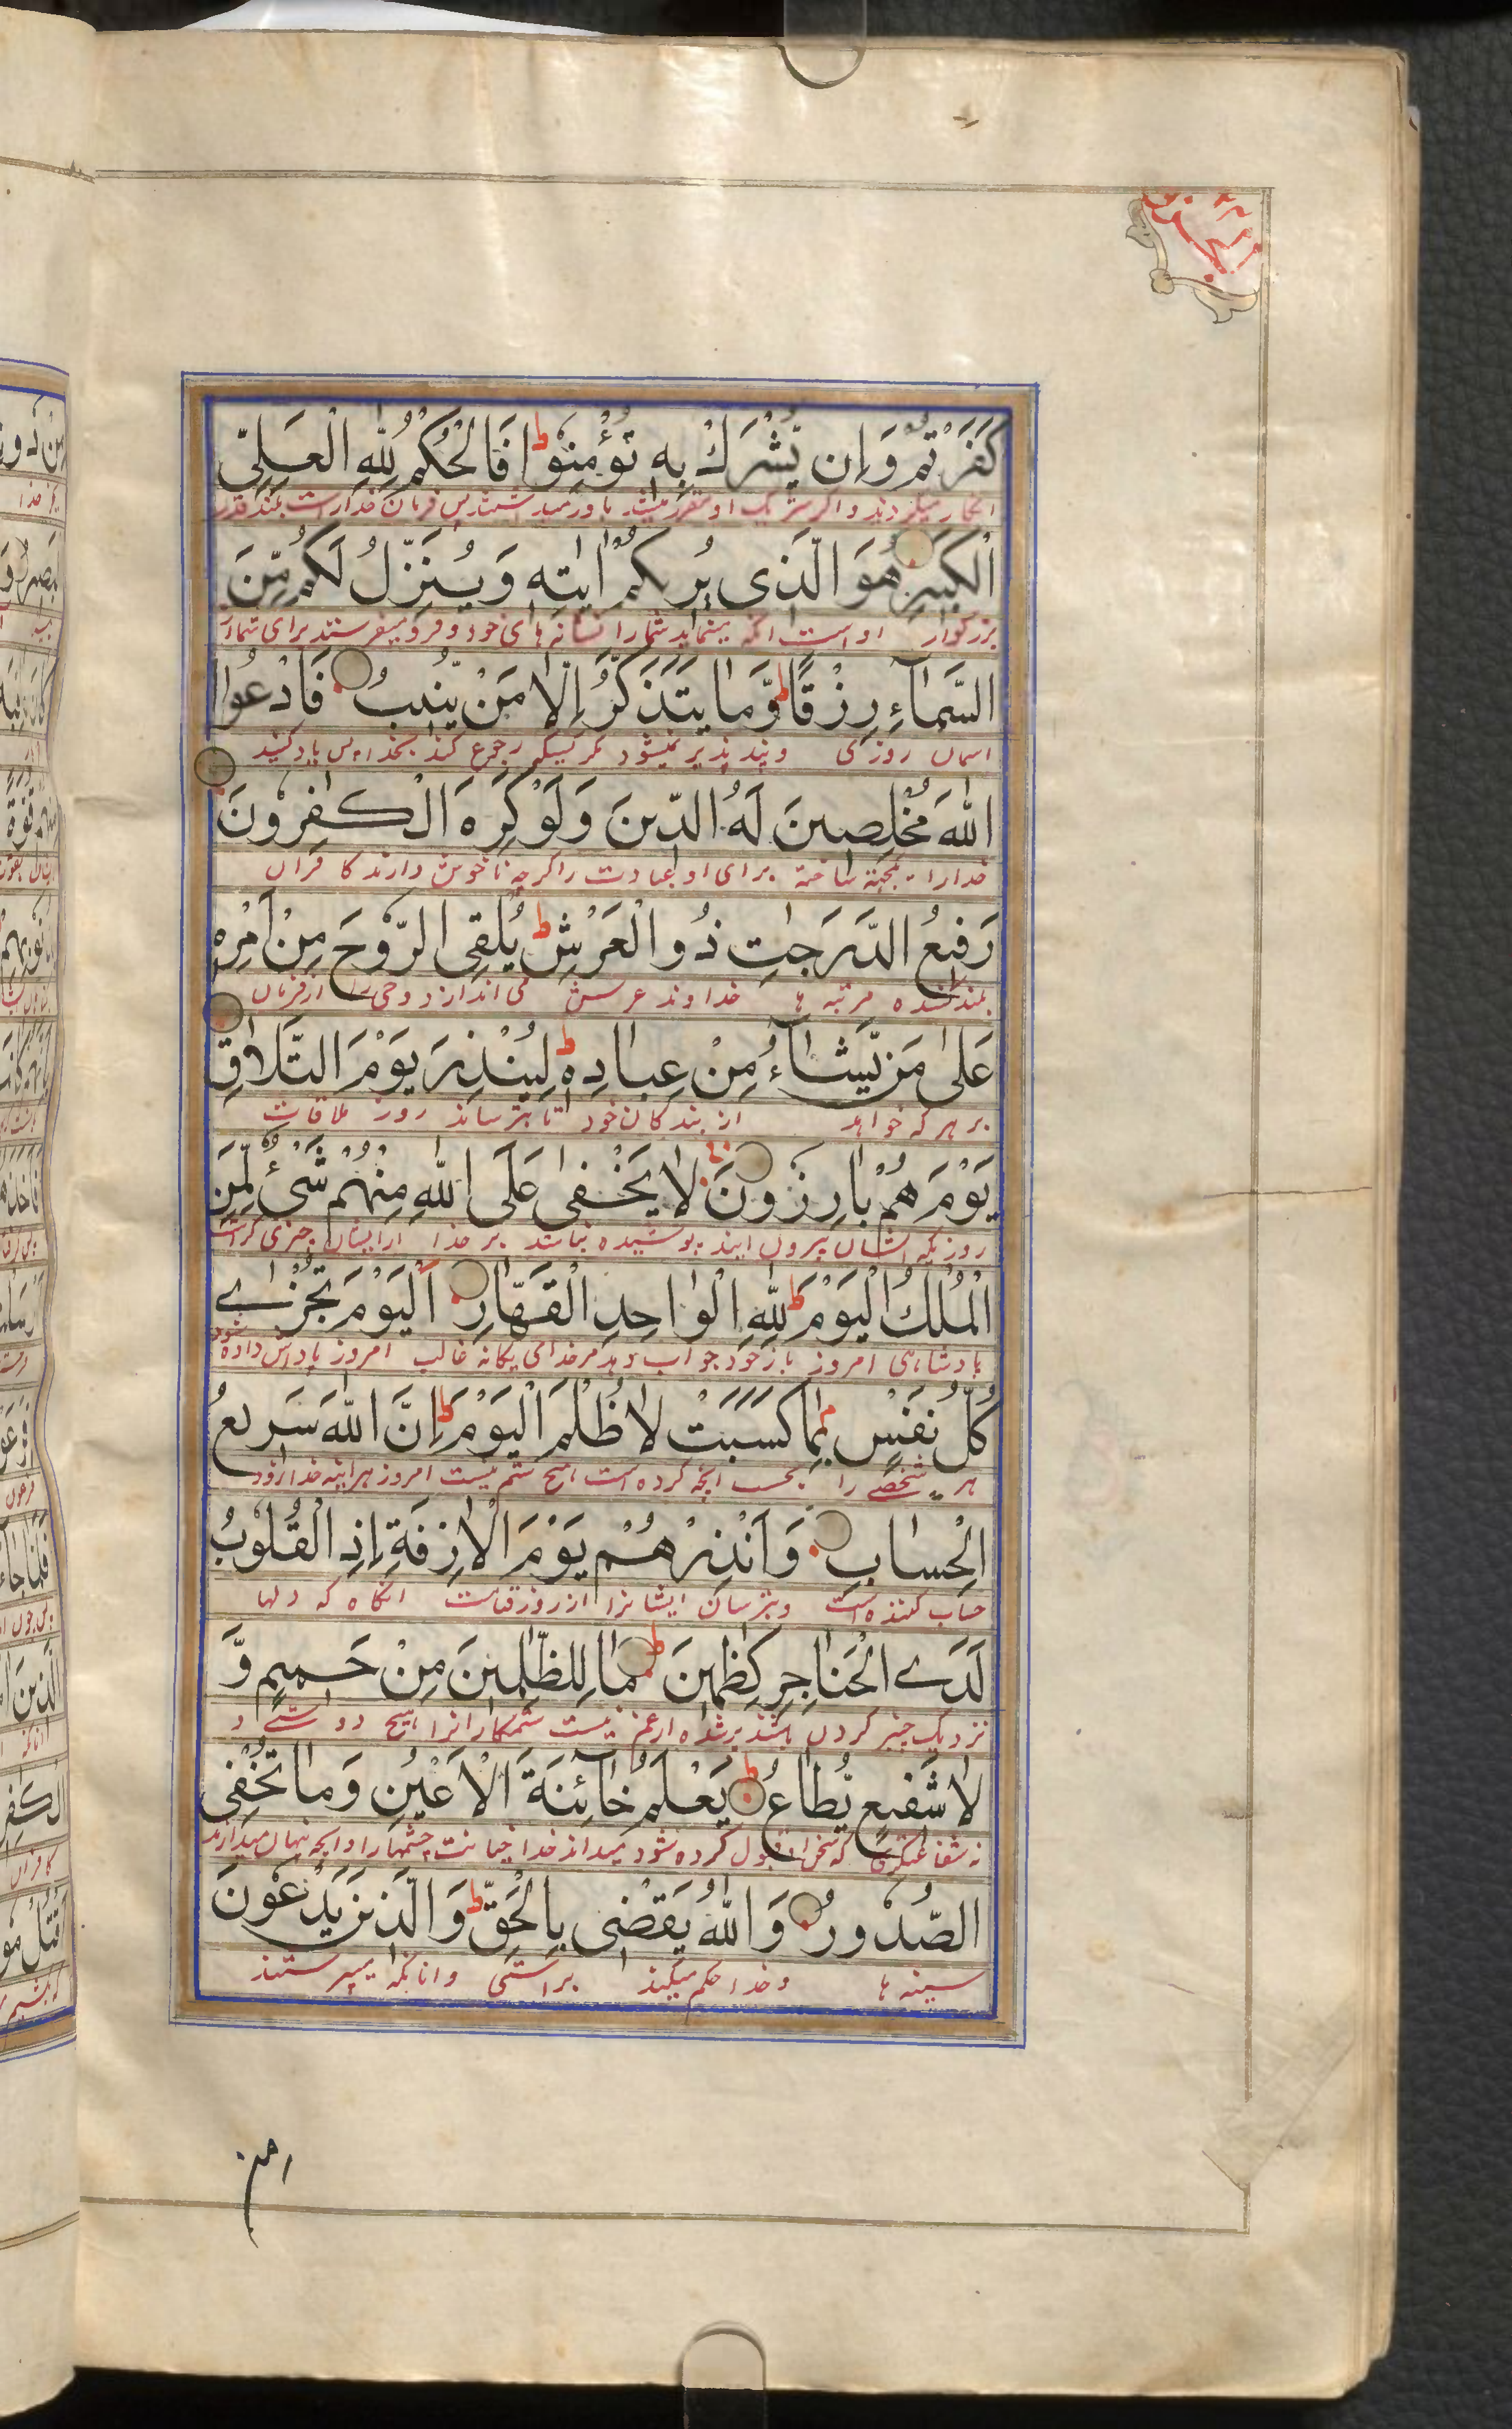 كَفَرْتُمْ وَاِنْ يُّشْرَكْ بِهٖ تُؤْمِنُوْا ط فَالْحُكْمُ لِلّٰهِ الْعَلِيِّ
انکار میکردند و اگر شریک او مقرر میشد باور میداشتند پس فرمان خدا راست بلند قدر
الْكَبِيْرِ هُوَ الَّذِى يُرِيكُمْ اٰيٰتِهٖ وَيُنَزِّلُ لَكُمْ مِّنَ
بزرکوار اوست انکه مینماید شما را نشانه های خود و فرو میفرستد برای شما از
السَّمَآءِ رِزْقًا ط وَّمَا يَتَذَكَّرُ اِلَّا مَنْ يُّنِيْبُ فَادْعُوا
اسمان روزی و پند پذیر نمیشود مکر کسیکه رجوع کند بخدا پس یاد کنید
اللّٰهَ مُخْلِصِيْنَ لَهُ الدِّيْنَ وَلَوْ كَرِهَ الْكٰفِرُوْنَ
خدا را ساخته برای او عبادت را کرچه ناخوش دارند کافران
رَفِيْعُ الدَّرَجٰتِ ذُو الْعَرْشِ ط يُلْقِى الرُّوْحَ مِنْ اَمْرِهٖ
بلند کننده مرتبه ها خداوند عرش می اندازد وحی را از فرمان
عَلٰى مَنْ يَّشَآءُ مِنْ عِبَادِهٖ ط لِيُنْذِرَ يَوْمَ التَّلَاقِ
بر هر که خواهد از بندکان خود تا بترساند روز ملاقات
يَوْمَ هُمْ بَارِزُوْنَ لَا يَخْفٰى عَلَى اللّٰهِ مِنْهُمْ شَىْءٌ لِّمَنِ
روزیکه ایشان بیرون ایند پوشیده نباشد بر خدا از ایشان چیزی کراست
الْمُلْكُ الْيَوْمَ ط لِلّٰهِ الْوَاحِدِ الْقَهَّارِ اَلْيَوْمَ تُجْزٰى
بادشاهی امروز باز خود جواب دهد مر خدای یکانه غالب امروز پاداش داده شود
كُلُّ نَفْسٍ بِمَا كَسَبَتْ لَا ظُلْمَ الْيَوْمَ ط اِنَّ اللّٰهَ سَرِيْعُ
هر شخصے را بحسب انچه کرده است هیچ ستم نیست امروز هراینه خدا زود
الْحِسَابِ وَاَنْذِرْهُمْ يَوْمَ الْاٰزِفَةِ اِذِ الْقُلُوْبُ
حساب کننده است و بترسان ایشانرا از روز قیامت انکاه که دلها
لَدَى الْحَنَاجِرِ كٰظِمِيْنَ ط مَا لِلظّٰلِمِيْنَ مِنْ حَمِيْمٍ وَّ
نزدیک چنبر کردن باشند پر شده از غم نیست ستمکارانرا هیچ دوستے و
لَا شَفِيْعٍ يُّطَاعُ ط يَعْلَمُ خَآئِنَةَ الْاَعْيُنِ وَمَا تُخْفِى
نه شفاعتکری که سخن او قبول کرده شود میداند خدا خیانت چشمها را و انچه پنهان میدارند
الصُّدُوْرُ وَاللّٰهُ يَقْضِى بِالْحَقِّ ط وَالَّذِيْنَ يَدْعُوْنَ
سینه ها و خدا حکم میکند براستی و انانکه میپرستند
من